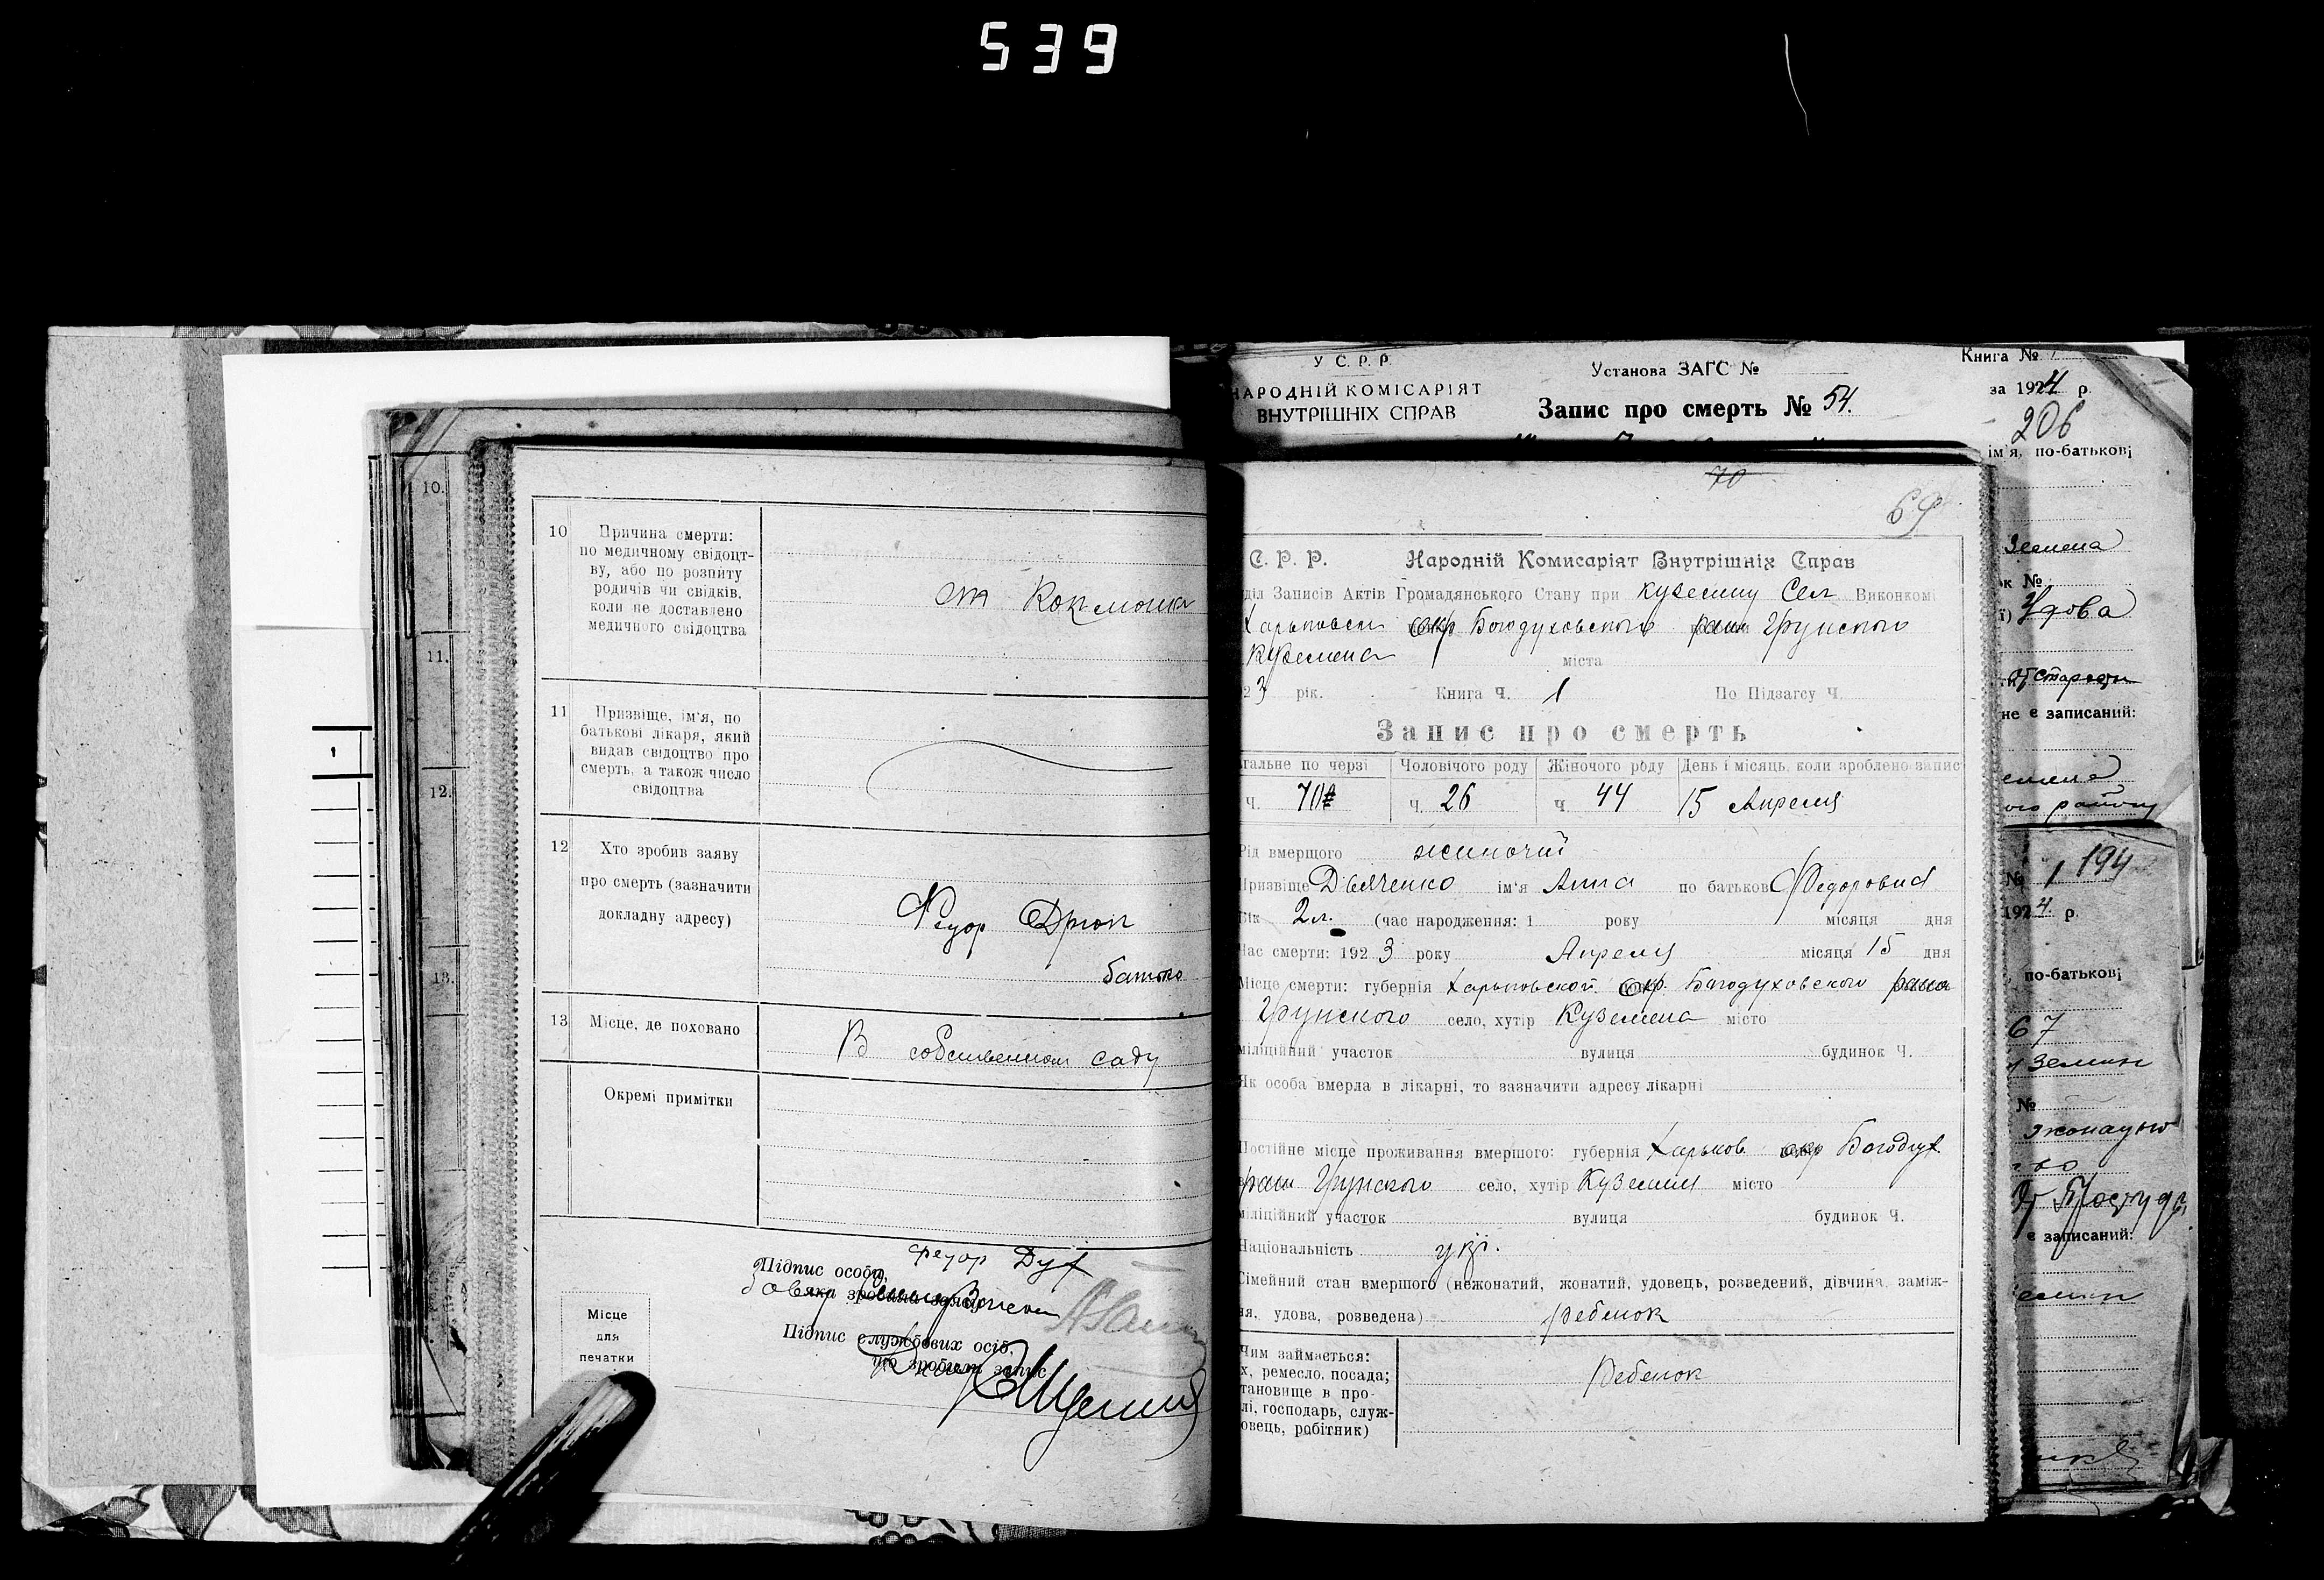 539
10.
11.
12.
13.
1
10 Причина смерти:
по медичному свідоцт-
ву, або по розпиту
родичів чи свідків,
коли не доставлено
медичного свідоцтва
от
11 Призвіще, ім'я, по
батькові лікаря, який
видав свідоцтво про
смерть, а також число
свідоцтва
12 Хто зробив заяву
про смерть (зазначити
докладну адресу)
Федор
батько
13 Місце, де поховано
В собственном саду
Окремі примітки
Федор
Підпис особи,
яка зробила заяву
Підпис службових осіб,
що зробили запис
Місце
для
печатки
У С. Р. Р.
НАРОДНІЙ КОМІСАРІЯТ
ВНУТРІШНІХ СПРАВ
Установа ЗАГС №
Запис про смерть № 54.
Книга №
за 1924 р.
206
ім'я, по-батькові
70
69
С. Р. Р. Народній Комисаріят Внутрішніх Справ
діл Записів Актів Громадянського Стану при Сел Виконкомі
Харьковск окр Богодуховского Грунского
Куземена міста
23 рік. Книга Ч. 1 По Підзагсу Ч.
Запис про смерть
гальне по черзі Чоловічого роду Жіночого роду День і місяць, коли зроблено запис
Ч. 70 Ч. 26 Ч. 44 15 Апреля
Рід вмершого жиночий
Призвіще Дьяченко ім'я Анна по батькові
Вік 2 л. (час народження: 1 року місяця дня
Час смерти: 1923 року Апреля місяця 15 дня
Місце смерти: губернія Харьковской окр. Богодуховского
Грунского село, хутір Куземена місто
міліційний участок вулиця будинок Ч.
Як особа вмерла в лікарні, то зазначити адресу лікарні
Постійне місце проживання вмершого: губернія Харьков. окр Богодух.
Грунского село, хутір місто
міліційний участок вулиця будинок Ч.
Національність укр.
Сімейний стан вмершого (нежонатий, жонатий, удовець, розведений, дівчина, заміж-
ня, удова, розведена) ребенок
Чим займається:
х, ремесло, посада;
тановище в про-
лі, господарь, служ-
овець, робітник)
Ребенок
ок №
Удова
не є записаний:
ого району
№ 1 194
1924 р.
по-батькові
67
№
є записаний: